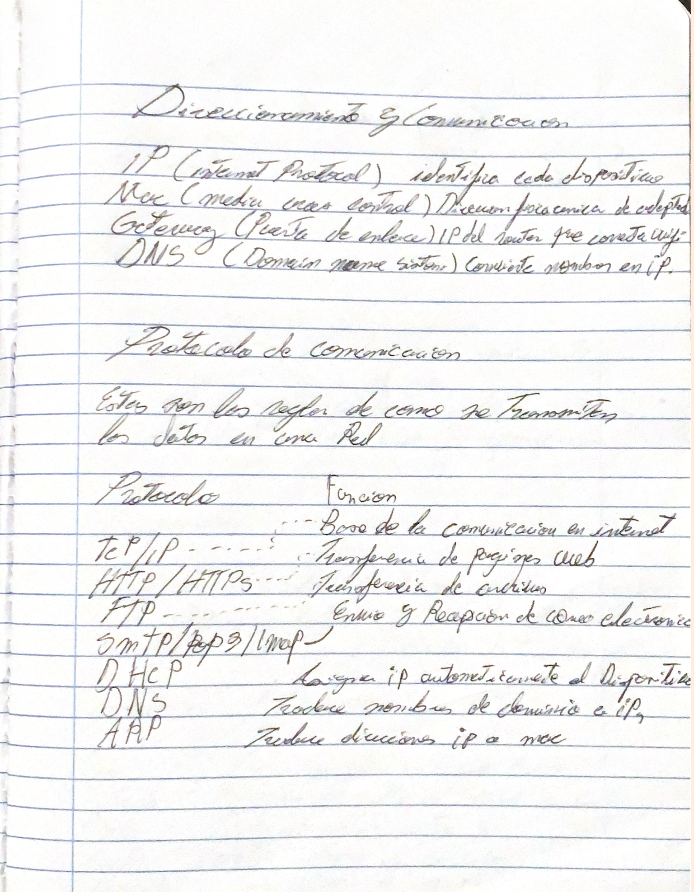 Direccionamiento y Comunicacion
IP (internet Protocol) identifica cada dispositivo
Mac (media acces control) Direccion fisica unica de adaptad
Gateway (Puerta de enlace) IP del router que conecta wifi
DNS (Domain name sistem) Convierte nombres en iP.
Protocolo de comunicacion
Estas son las reglas de como se Transmiten
los datos en una Red
Protocolo Funcion
Base de la comunicacion en internet
TCP/iP Transferencia de paginas web
HTTP/HTTPs Transferencia de archivos
FTP Envio y Recepción de correo electronico
SmTP/Pop3/Imap
DHCP Asigna iP automaticamente al Dispositivo
DNS Traduce nombres de dominio a iPs
ARP Traduce direcciones iP a mac